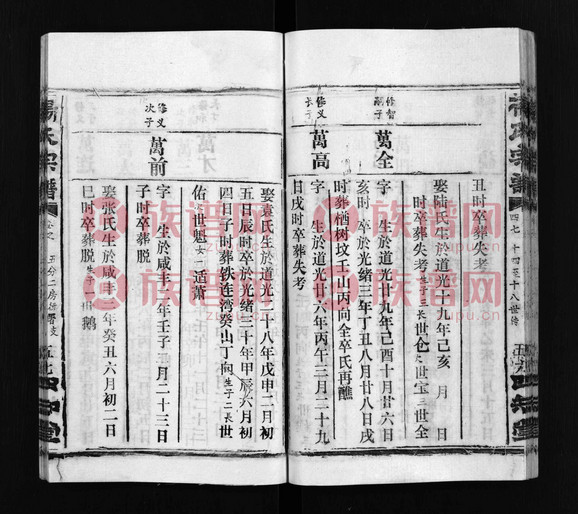 丑时卒葬失考
娶陆氏生於道光十九年己亥 月 日
时卒葬失考生子三长世仓二世宝三世全
修智
嗣子
萬全
字 生於道光廿九年己酉十月廿六日
亥时 卒於光绪三年丁丑八月廿八日戌
时葬栖树坟壬山丙向全卒氏再醮
修义
长子
萬高
字 生於道光廿六年丙午三月二十九
日戌时卒葬失考
楊氏宗譜
四七 十四至十八世传
四知堂
娶袁氏生於道光二十八年戊申二月初
五日辰时卒於光绪三十年甲辰六月初
四日子时葬铁连湾癸山丁向生子二长世
佑 世魁女一适萧
修义
次子
萬前
字 生於咸丰二年壬子三月二十三日
子时卒葬脱
娶张氏生於咸丰三年癸丑六月初二日
巳时卒葬脱生子一世鹅
楊氏宗譜
五分二房
五七
四知堂
族谱网
族谱网
族谱网
族谱网